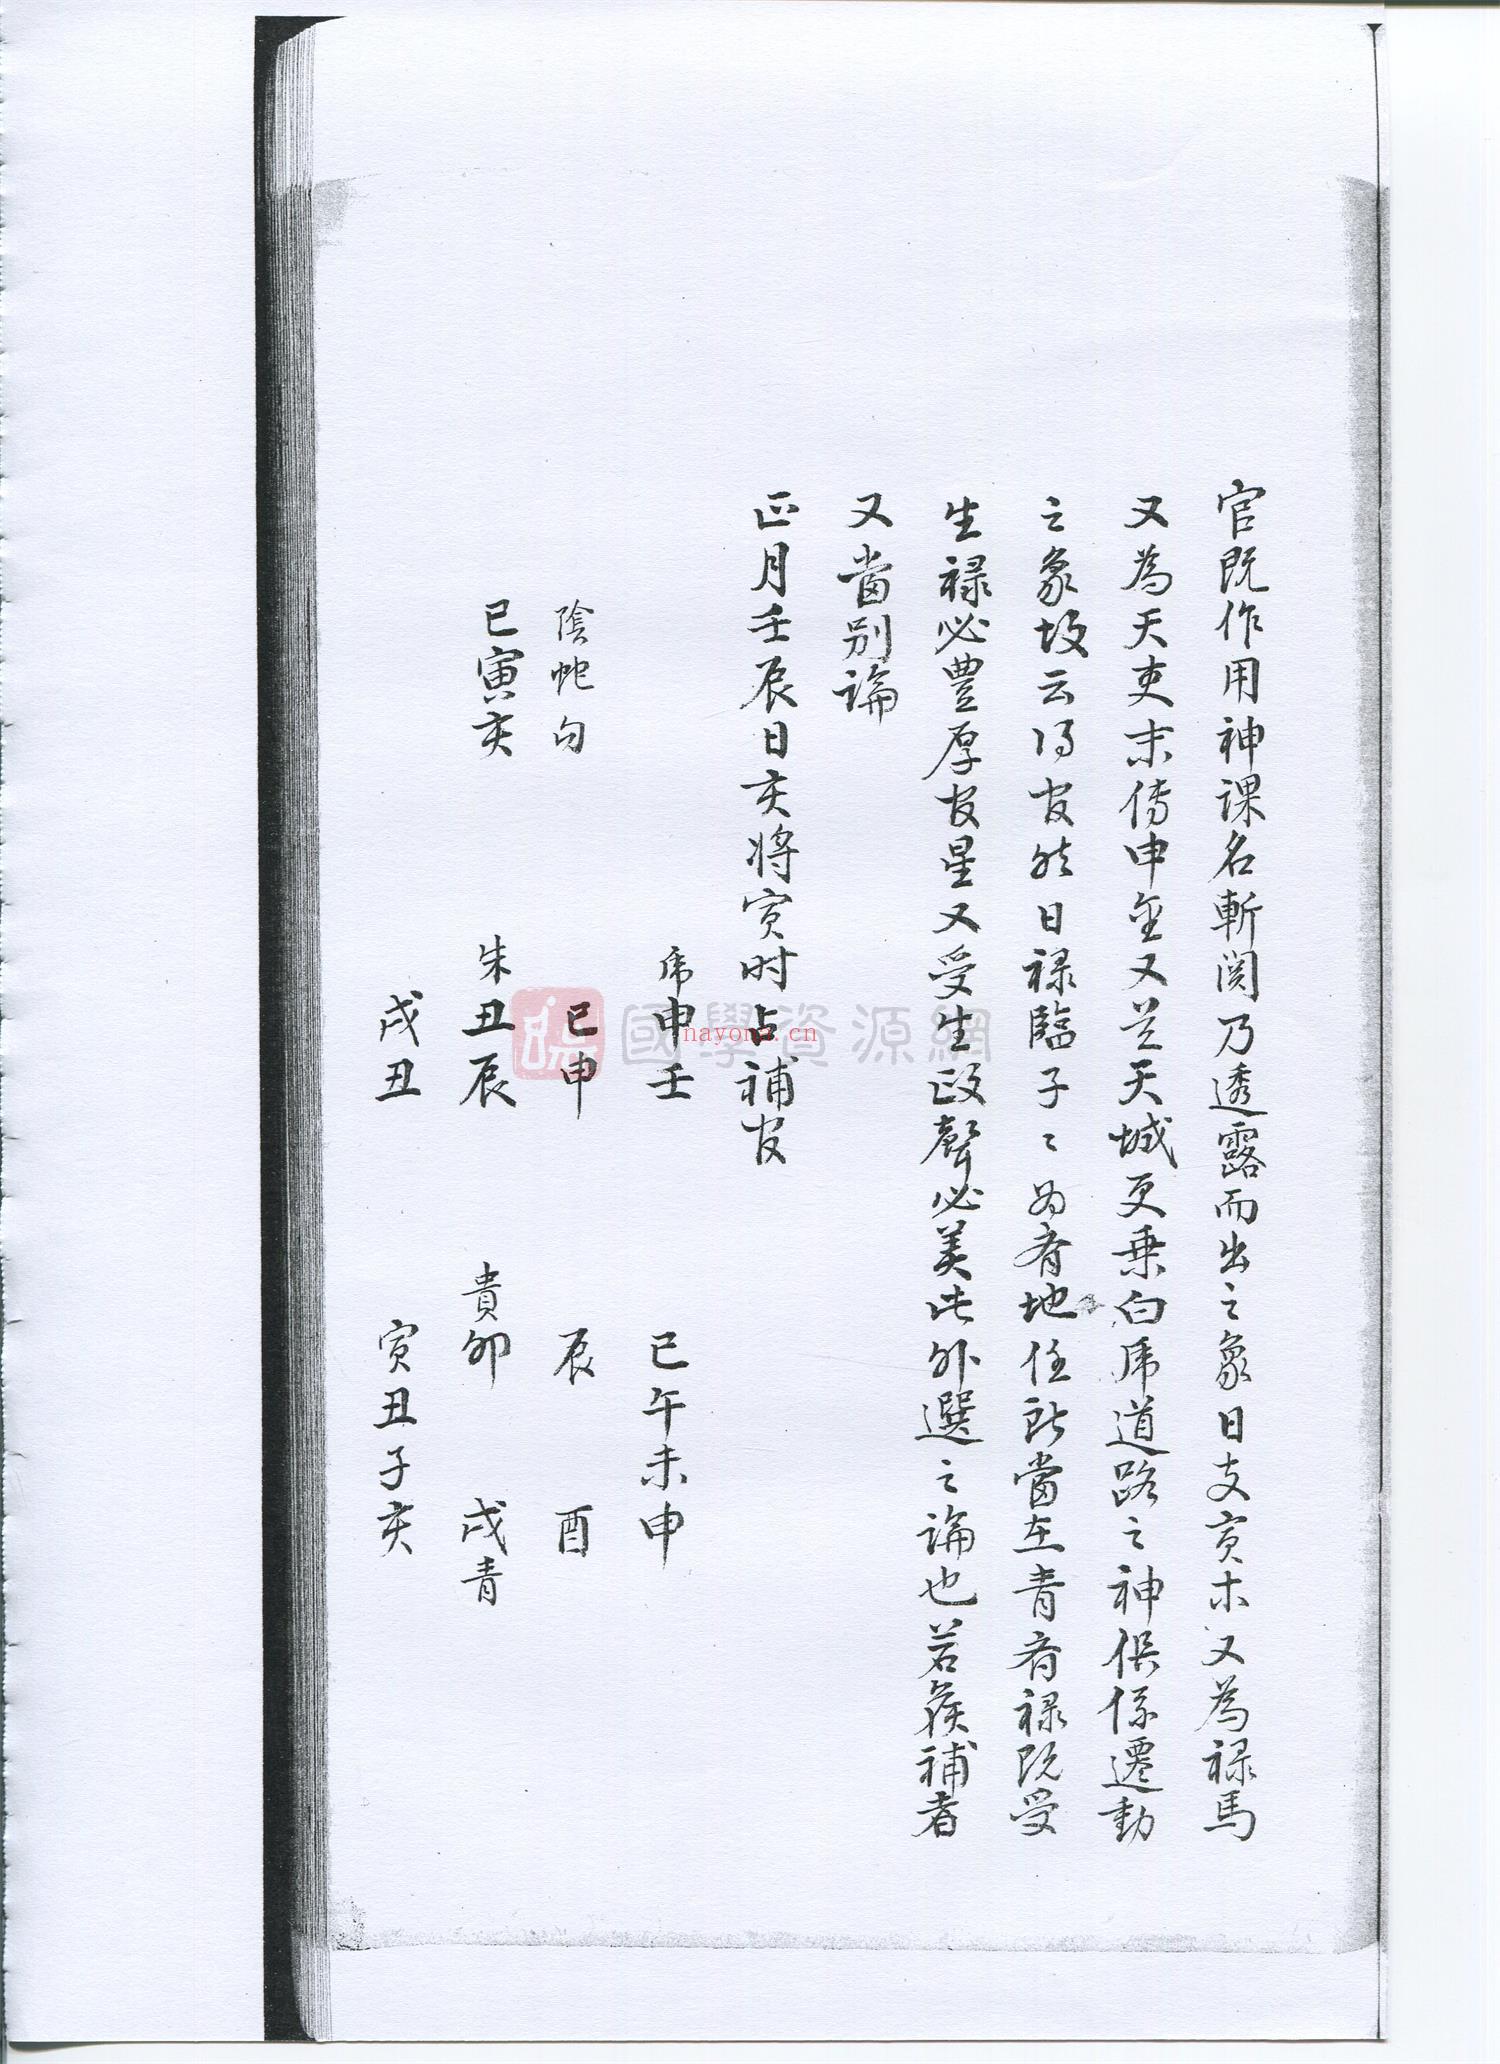 官既作用神課名斬関乃透露而出之象日支寅木又為禄馬
又為天吏末傳申金又是天城更乗白虎道路之神俱係遷動
之象故云得官然日禄臨子〻为有地任所當在青有禄既受
生禄必豐厚官星又受生政聲必美此外選之論也若候補者
又當别論
正月壬辰日亥将寅时占補官
虎申壬
巳午未申
陰蛇勾
巳申
辰
酉
巳寅亥
朱丑辰
貴卯
戌青
戌丑
寅丑子亥
國學資源網
nayona.cn